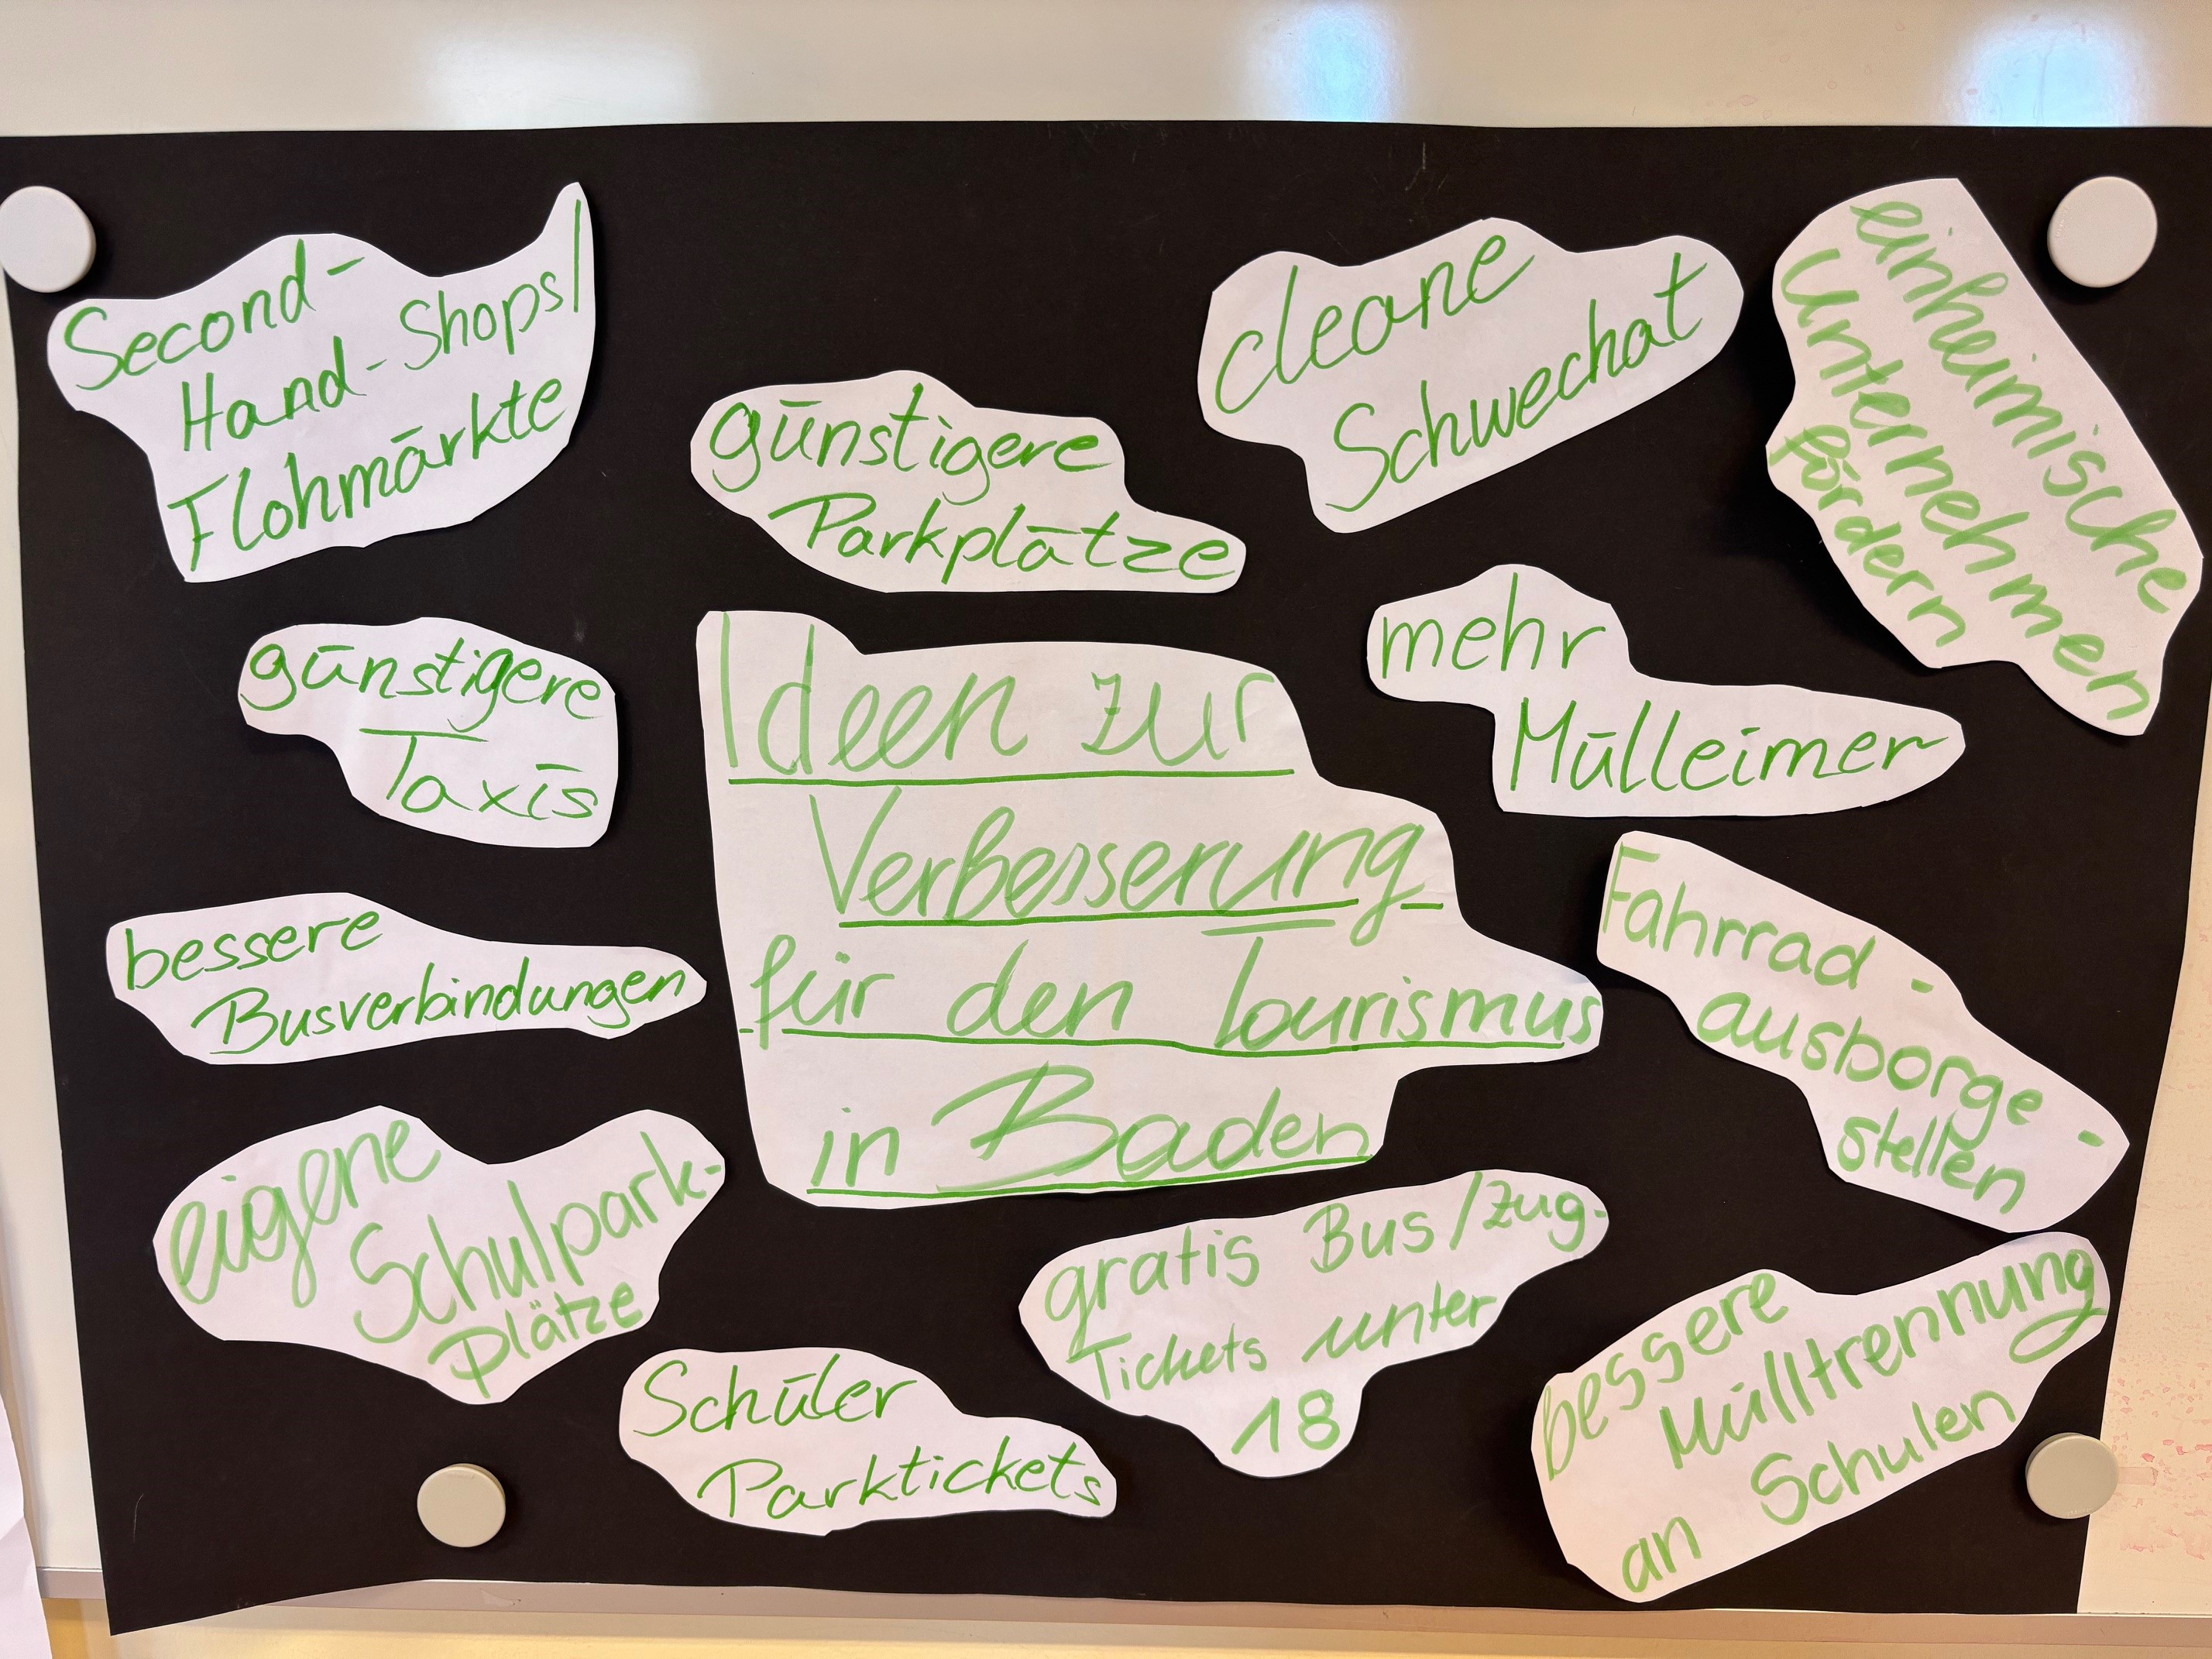 Second-
Hand-Shops/
Flohmärkte
günstigere
Parkplätze
cleane
Schwechat
einheimische
Unternehmen
fördern
günstigere
Taxis
Ideen zur
Verbesserung
für den Tourismus
in Baden
mehr
Mülleimer
bessere
Busverbindungen
Fahrrad-
ausborge-
stellen
eigene
Schulpark-
plätze
gratis Bus/Zug-
Tickets unter
18
Schüler
Parktickets
bessere
Mülltrennung
an Schulen